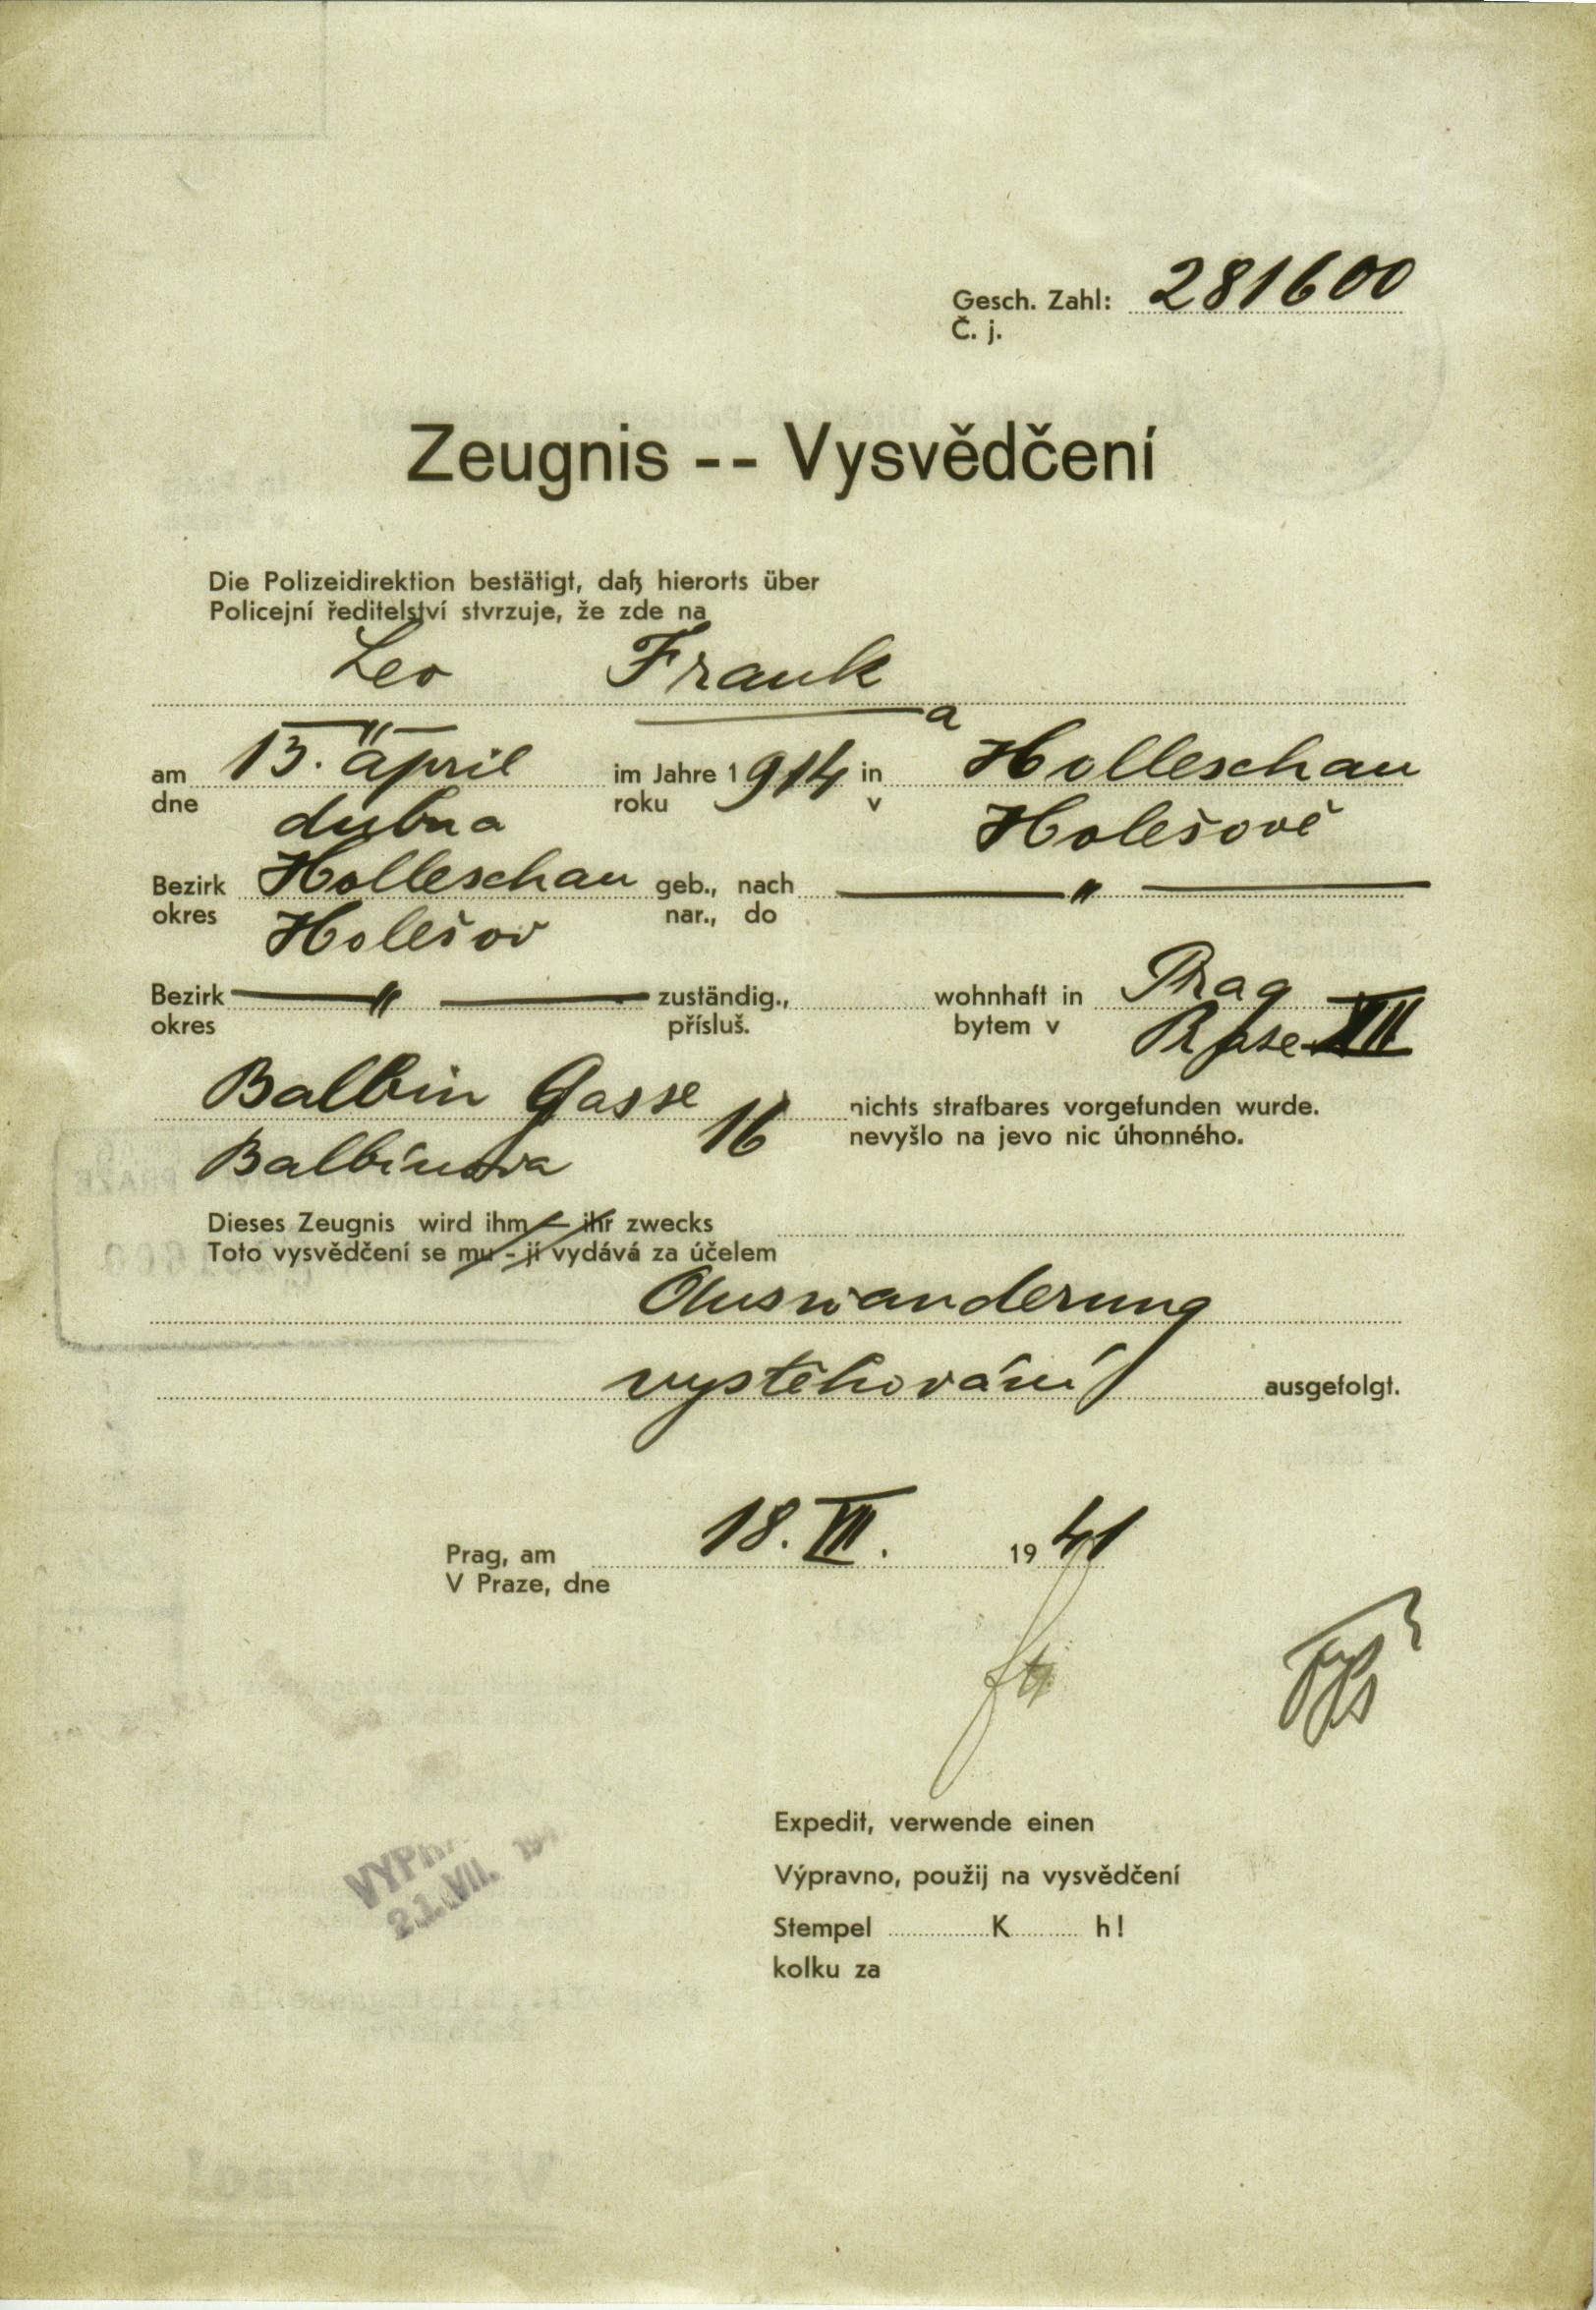 Gesch. Zahl: 281600
Č. j.
Zeugnis -- Vysvědčení
Die Polizeidirektion bestätigt, daß hierorts über
Policejní ředitelství stvrzuje, že zde na
Leo Frank
a
am 13. april im Jahre 1914 in Holleschau
dne dubna roku v Holešově
Bezirk Holleschau geb., nach — " —
okres Holešov nar., do
Bezirk — " — zuständig., wohnhaft in Prag
okres přísluš. bytem v Praze XII
Balbin Gasse 16 nichts strafbares vorgefunden wurde.
Balbínova nevyšlo na jevo nic úhonného.
Dieses Zeugnis wird ihm - ihr zwecks
Toto vysvědčení se mu - jí vydává za účelem
Auswanderung
vystěhování ausgefolgt.
Prag, am 18. VII. 1941
V Praze, dne
Expedit, verwende einen
Výpravno, použij na vysvědčení
Stempel K h!
kolku za
21. VII.